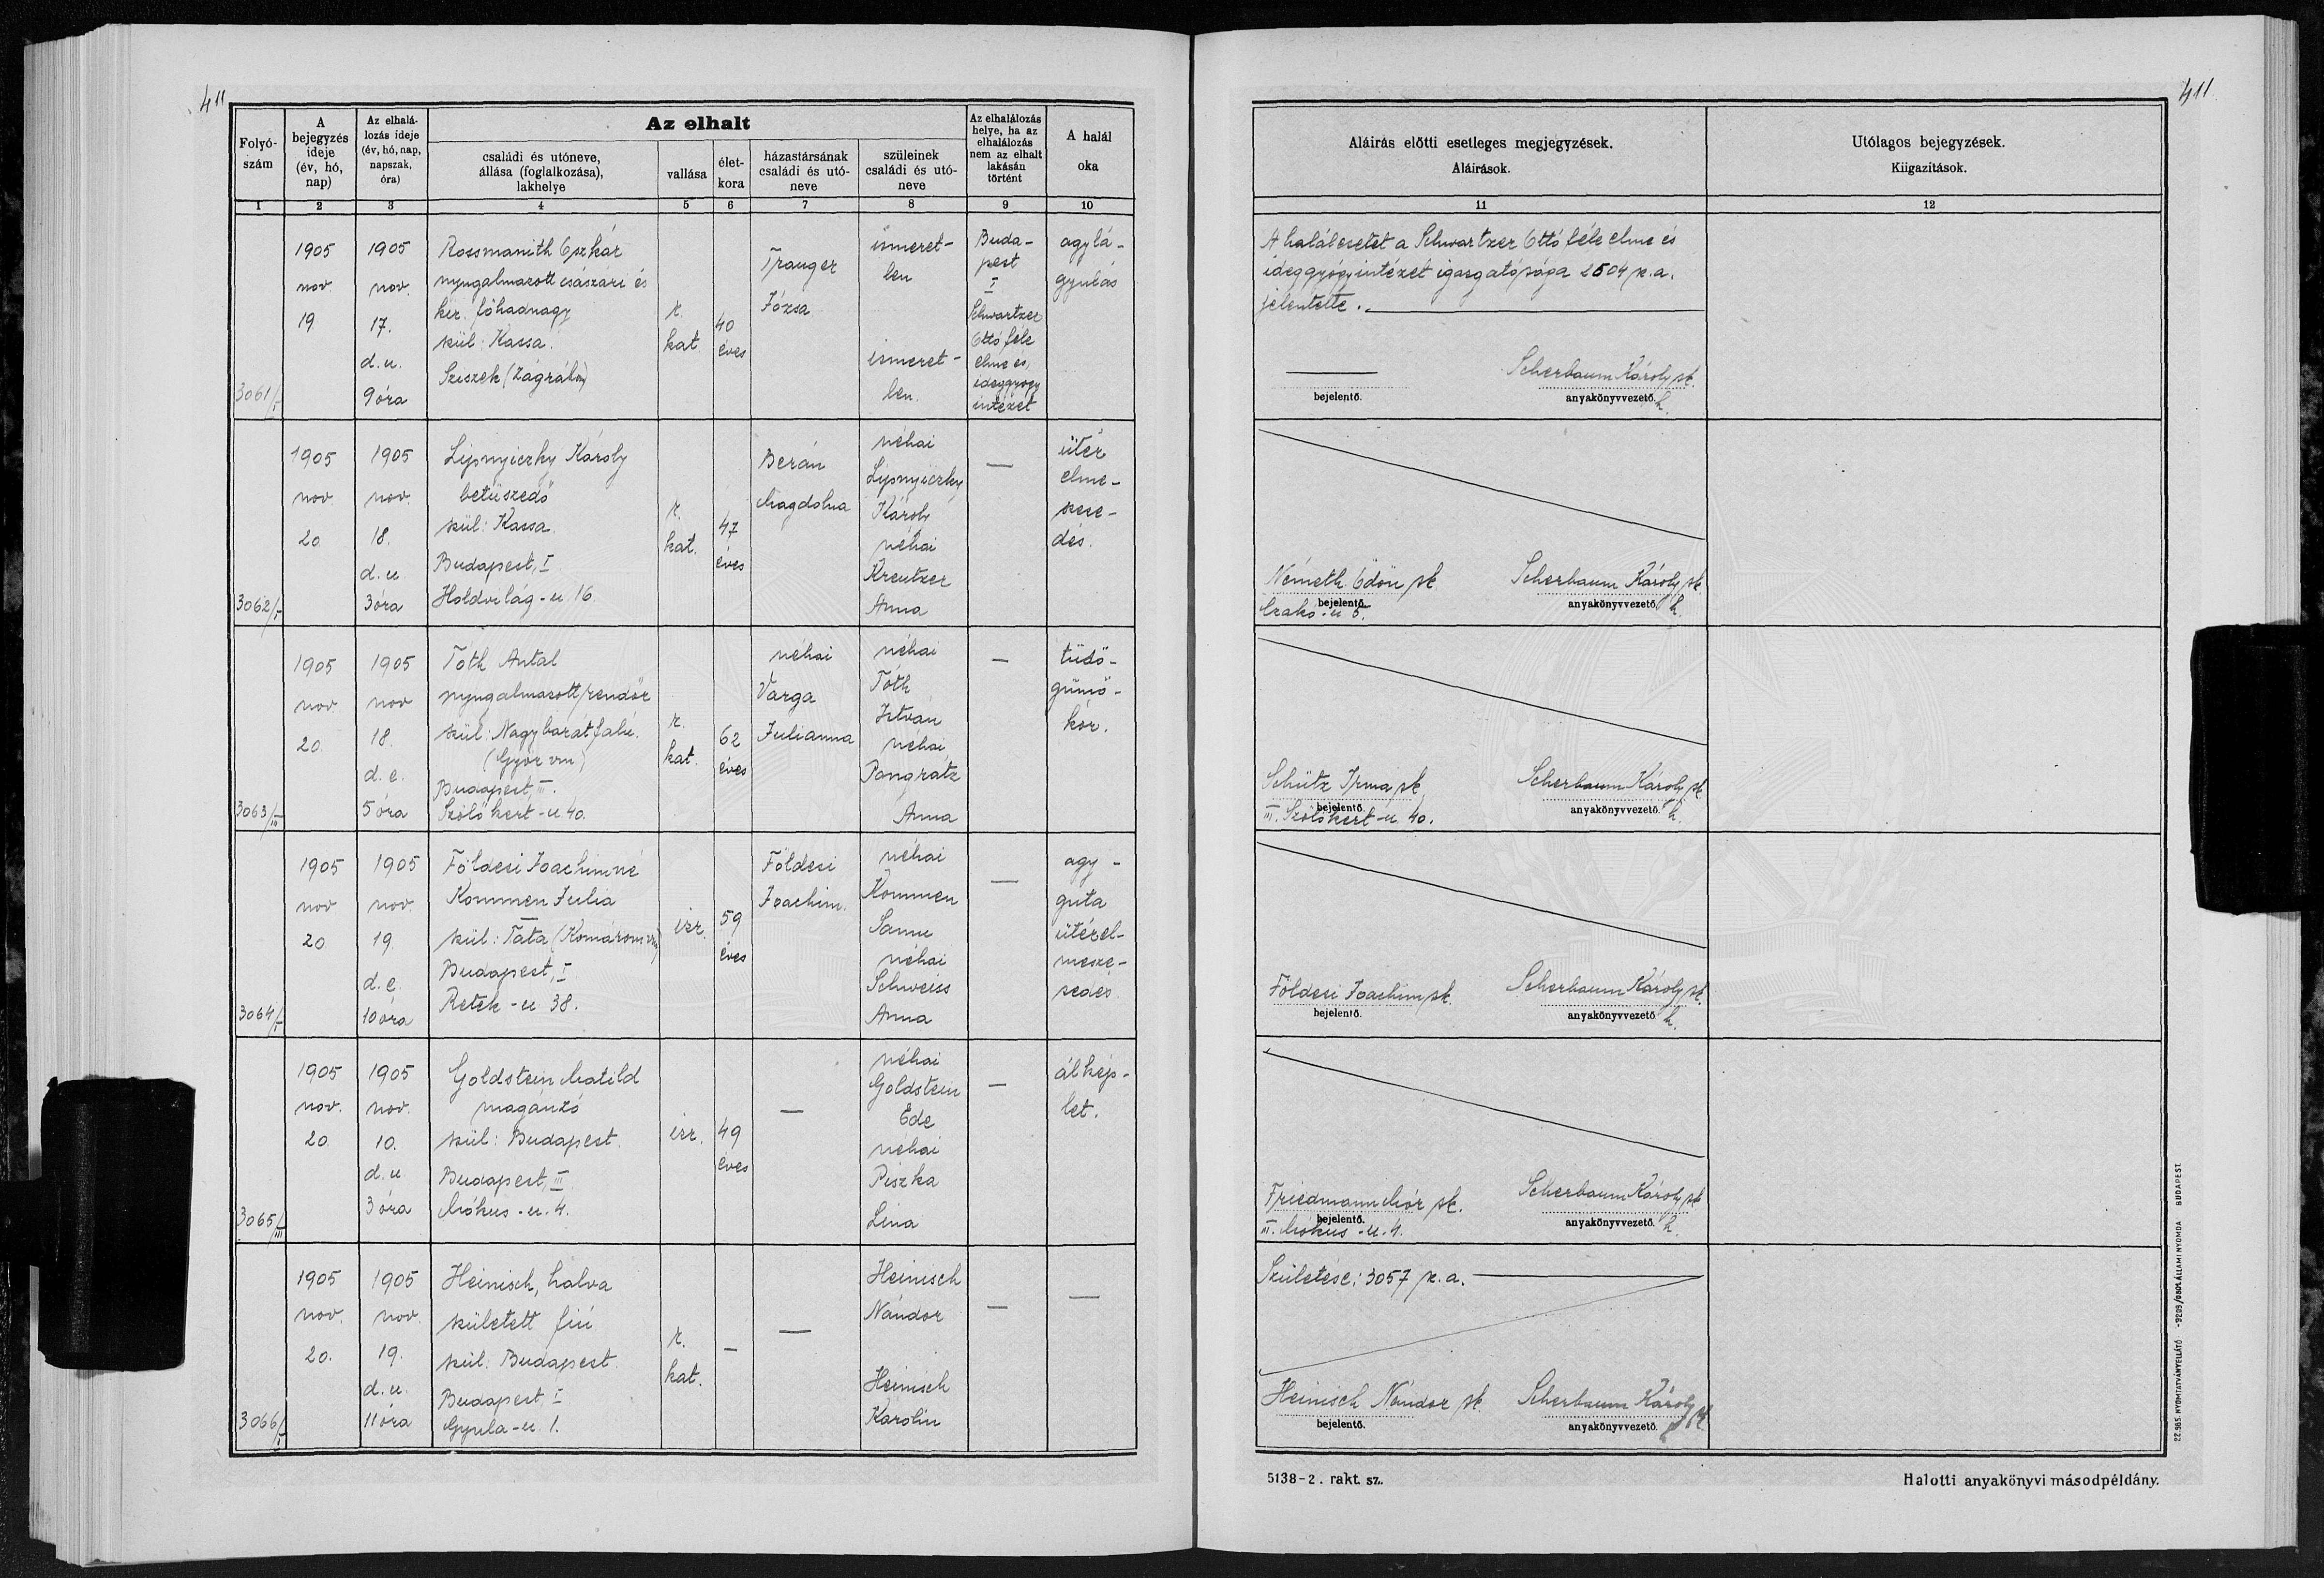 411
Folyó-
szám
A
bejegyzés
ideje
(év, hó,
nap)
Az elhalá-
lozás ideje
(év, hó, nap,
napszak,
óra)
Az elhalt
családi és utóneve,
állása (foglalkozása),
lakhelye
vallása
élet-
kora
házastársának
családi és utó-
neve
szüleinek
családi és utó-
neve
Az elhalálozás
helye, ha az
elhalálozás
nem az elhalt
lakásán
történt
A halál
oka
1 2 3 4 5 6 7 8 9 10
3061/I
1905
nov.
19
1905
nov.
17.
d.u.
9 óra
Rossmanith Oszkár
nyugalmazott császári és
kir. főhadnagy
szül: Kassa.
Sziszek (Zágráb m)
r.
kat
40
éves
Trauger
Józsa
ismeret-
len
ismeret-
len.
Buda-
pest
I
Schwartzer
Ottó féle
elme és
ideggyógy
intézet
agylá-
gyulás
3062/I
1905
nov
20.
1905
nov.
18.
d.u
3 óra
Lipnyiczky Károly
betűszedő
szül: Kassa.
Budapest, I
Holdvilág-u 16.
r.
kat.
47
éves
Berán
Magdolna
néhai
Lipnyiczky
Károly
néhai
Kreutzer
Anna
—
ütér
elme-
szese-
dés.
3063/III
1905
nov.
20.
1905
nov
18.
d.e.
5 óra
Tóth Antal
nyugalmazott rendőr
szül: Nagybarátfalu.
(Győr vm)
Budapest, III.
Szőlőkert-u 40.
r.
kat.
62
éves
néhai
Varga
Julianna
néhai
Tóth
István
néhai
Pongrátz
Anna
—
tüdő-
gümő-
kór.
3064/I
1905
nov
20
1905
nov.
19.
d.e.
10 óra
Földesi Joachimné
Kommen Julia
szül: Tata (Komárom vm)
Budapest, I
Retek-u 38.
izr.
59
éves
Földesi
Joachim.
néhai
Kommen
Samu
néhai
Schweiss
Anna
—
agy-
guta
ütérel-
mesze-
sedés
3065/III
1905
nov.
20.
1905
nov.
10.
d.u
3 óra
Goldstein Matild
magánzó
szül: Budapest.
Budapest, III
Mókus-u. 4.
izr.
49
éves
—
néhai
Goldstein
Ede
néhai
Piszka
Lina
—
álkép-
let.
3066/I
1905
nov.
20.
1905
nov.
19.
d.u.
11 óra
Heinisch, halva
született fiú
szül: Budapest.
Budapest I
Gyula-u 1.
r.
kat.
—
—
Heinisch
Nándor
Heinisch
Karolin
—
—
411
Aláírás előtti esetleges megjegyzések.
Aláírások.
Utólagos bejegyzések.
Kiigazítások.
11 12
A halálesetet a Schwartzer Ottó féle elme és
ideggyógyintézet igazgatósága 2504 sz.a.
jelentette.
Scherbaum Károly sk.
bejelentő. anyakönyvvezető. h.
Németh Ödön sk Scherbaum Károly sk
bejelentő. anyakönyvvezető. h.
Czakó-u 5.
Schütz Irma sk. Scherbaum Károly sk
bejelentő. anyakönyvvezető. h.
III. Szőlőkert-u. 40.
Földesi Joachim sk. Scherbaum Károly sk.
bejelentő. anyakönyvvezető h.
Friedmann Mór sk. Scherbaum Károly sk
bejelentő. anyakönyvvezető. h
III. Mókus-u. 4.
Születése: 3057 sz.a.
Heinisch Nándor sk. Scherbaum Károly sk
bejelentő. anyakönyvvezető. h
5138-2. rakt. sz.
Halotti anyakönyvi másodpéldány.